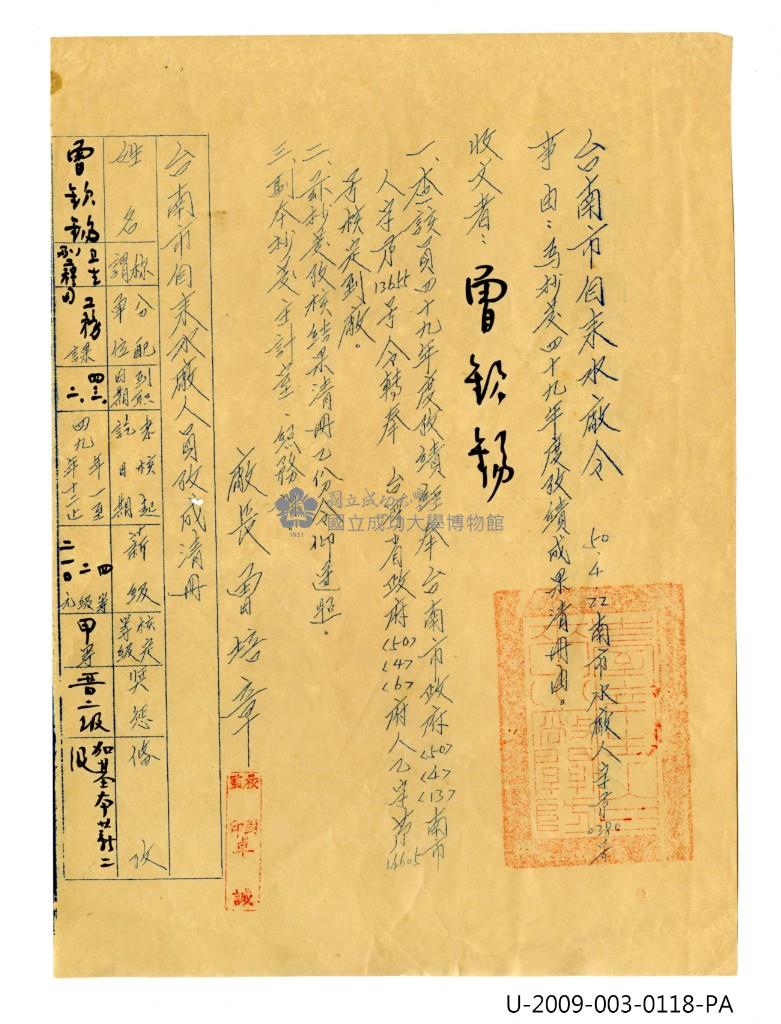 台南市自来水廠令 50.4.22南市水廠人字第0390号
事由：為抄發四十九年度攷績成果清冊由。
收文者：曾欽錫
一、查該員四十九年度攷績經奉台南市政府<50><4><13>南市
人字第13655号令轉奉 台灣省政府<50><4><6>府人乙字第14605
号核定到廠。
二、茲抄發攷核結果清冊乙份令仰遵照。
三、副本抄發主計室、總務
廠長曾培章
監 校
印 對
卓誠
台南市自来水廠人員攷成清冊
姓名 稱謂 分配單位 到職日期 考核起訖日期 薪級 核定等級 奨懲 備攷
曾欽錫 卫生 工務課 四三、二、 四九年一至年十二止 四等二級二一〇元 甲等 晋二級 加基本薪二
國立成功大學
國立成功大學博物館
1931
U-2009-003-0118-PA